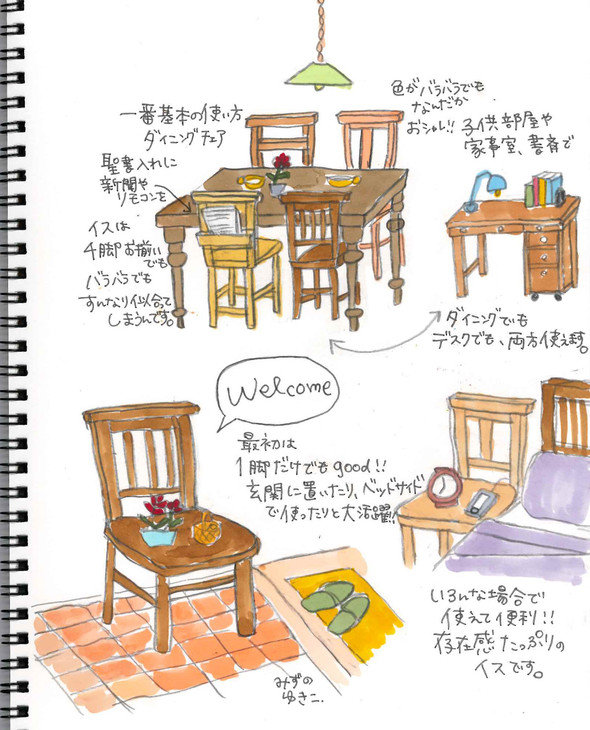 一番基本の使い方
ダイニングチェア
聖書入れに
新聞や
リモコンを
イスは
4脚お揃い
でも
バラバラでも
すんなり似合って
しまうんです。
色がバラバラでも
なんだか
おシャレ!!
子供部屋や
家事室、書斎で
ダイニングでも
デスクでも、両方使えます。
Welcome
最初は
1脚だけでもgood!!
玄関に置いたり、ベッドサイド
で使ったりと大活躍!!
いろんな場合で
使えて便利!!
存在感たっぷりの
イスです。
みずの
ゆきこ.